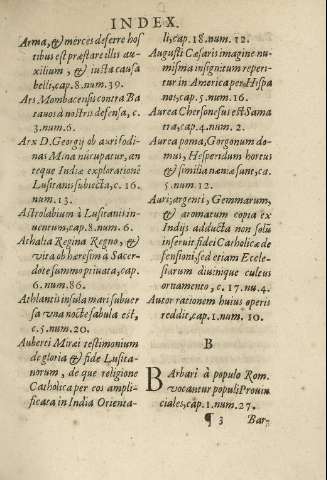 INDEX.
Arma, & merces deferre hos
tibus est præstare illis au-
xilium, & iusta causa
belli, cap. 8. num. 39.
Ars Mombacensis contra Ba
tauos à nostris defensa, c.
3. num. 6.
Arx D. Georgij ob aurifodi-
nas Mina nũcupatur, an
teque Indiæ explorationẽ
Lusitanis subiecta, c. 16.
num. 13.
Astrolabium à Lusitanis in-
uentum, cap. 8. num. 6.
Athalia Regina Regno, &
vita ob hæresim à Sacer-
dote summo priuata, cap.
6. num. 86.
Athlantis insula mari subuer
sa vna nocte fabula est,
c. 5. num. 20.
Auberti Miræi testimonium
de gloria & fide Lusita-
norum, de que religione
Catholica per eos ampli-
ficata in India Orienta-
li, cap. 18. num. 12.
Augusti Cæsaris imagine nu-
misma insignitum reperi-
tur in America per Hispa
nos, cap. 5. num. 16.
Aurea Chersonesus est Sama
tra, cap. 4. num. 2.
Aurea poma, Gorgonum do-
mus, Hesperidum hortus
& similia næniæ sunt, ca.
5. num. 12.
Auri, argenti, Gemmarum,
& aromatum copia ex
Indijs adducta non solũ
inseruit fidei Catholicæ de
fensioni, sed etiam Eccle-
siarum diuinique cultus
ornamento, c. 17. nu. 4.
Autor rationem huius operis
reddit, cap. 1. num. 10.
B
BArbari à populo Rom.
vocantur populi Prouin
ciales, cap. 1. num. 27.
¶ 3 Bar-